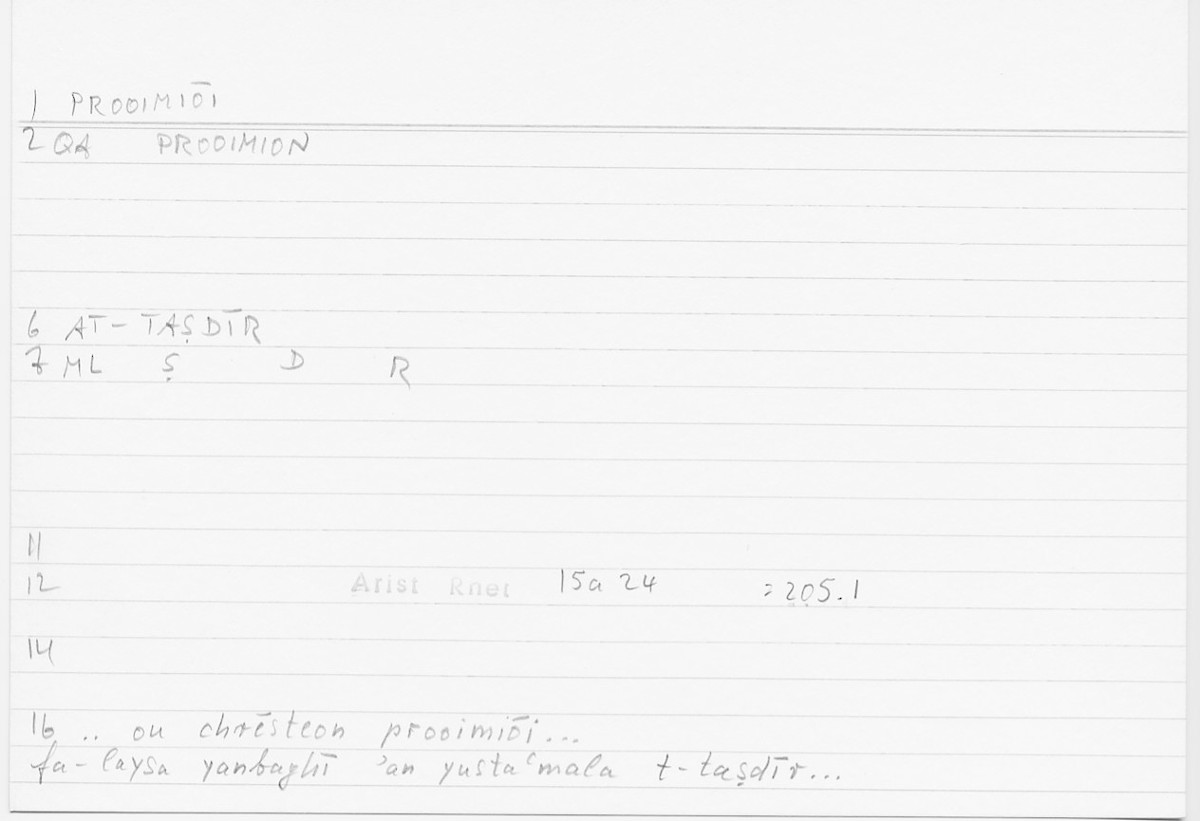 1 PROOIMIŌI
2 QA PROOIMION
6 AT-TAṢDĪR
7 ML Ṣ D R
11
12 Arist Rhet 15a 24 =205.1
14
16 .. ou chrēsteon prooimiōi...
fa-laysa yanbaghī ʾan yustaʿmala t-taṣdīr...